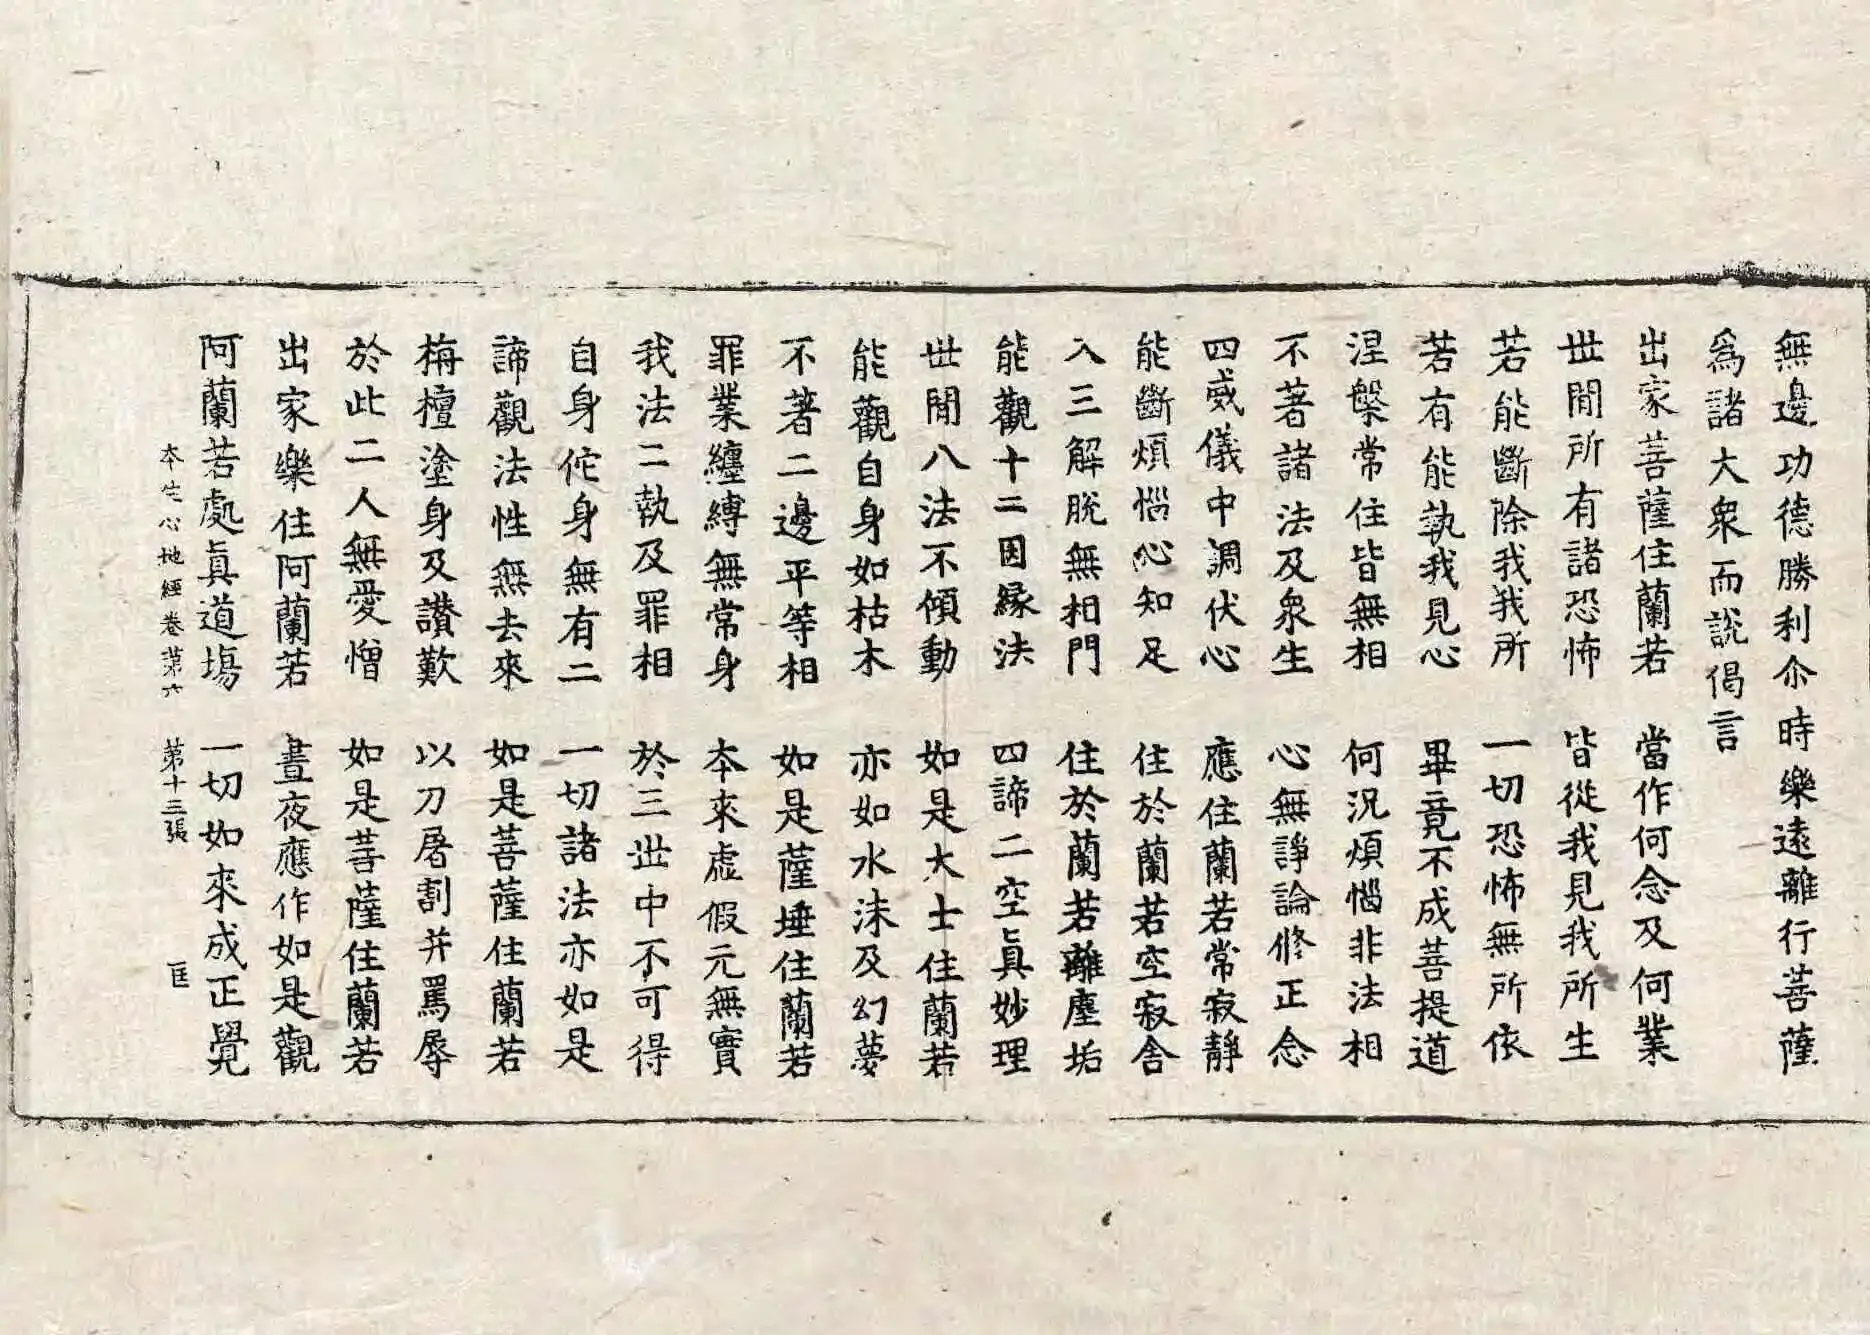 無邊功德勝利尒時樂遠離行菩薩
爲諸大衆而說偈言
出家菩薩住蘭若　當作何念及何業
世閒所有諸恐怖　皆從我見我所生
若能斷除我我所　一切恐怖無所依
若有能執我見心　畢竟不成菩提道
涅槃常住皆無相　何況煩惱非法相
不著諸法及衆生　心無諍論修正念
四威儀中調伏心　應住蘭若常寂靜
能斷煩惱心知足　住於蘭若空寂舍
入三解脫無相門　住於蘭若離塵垢
能觀十二因緣法　四諦二空眞妙理
世閒八法不傾動　如是大士住蘭若
能觀自身如枯木　亦如水沫及幻夢
不著二邊平等相　如是薩埵住蘭若
罪業纏縛無常身　本來虛假元無實
我法二執及罪相　於三世中不可得
自身佗身無有二　一切諸法亦如是
諦觀法性無去來　如是菩薩住蘭若
栴檀塗身及讚歎　以刀屠割并罵辱
於此二人無愛憎　如是菩薩住蘭若
出家樂住阿蘭若　晝夜應作如是觀
阿蘭若處眞道場　一切如來成正覺
本生心地經卷第六　第十三張　匡